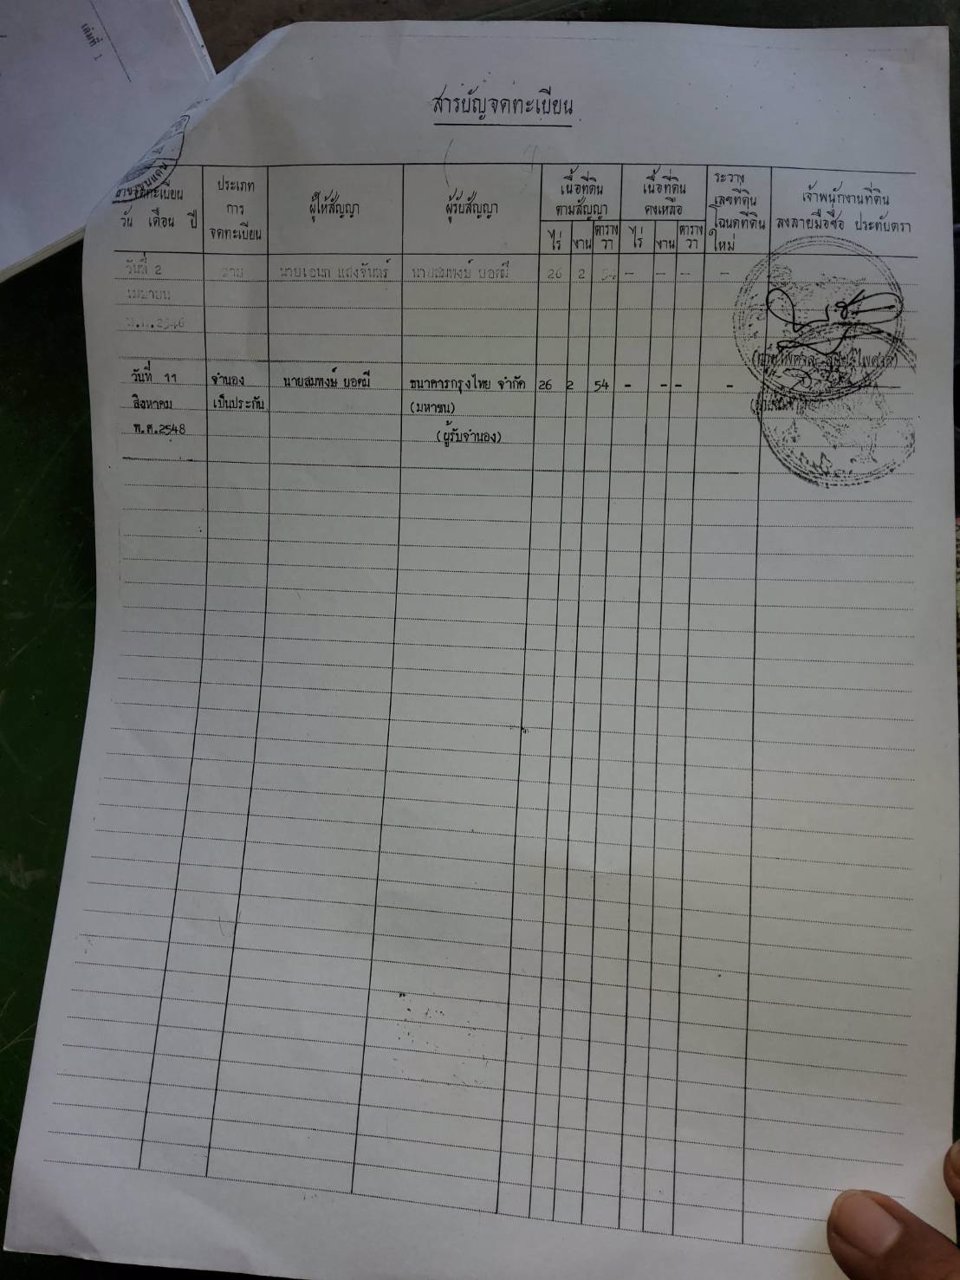 เล่มที่ 1
สารบัญจดทะเบียน
จดทะเบียน
วัน เดือน ปี
ประเภท
การ
จดทะเบียน
ผู้ให้สัญญา
ผู้รับสัญญา
เนื้อที่ดิน
ตามสัญญา
ไร่ งาน ตาราง
วา
เนื้อที่ดิน
คงเหลือ
ไร่ งาน ตาราง
วา
ระวาง
เลขที่ดิน
โฉนดที่ดิน
ใหม่
เจ้าพนักงานที่ดิน
ลงลายมือชื่อ ประทับตรา
วันที่ 2 ขาย นายเอนก แสงจันทร์ นายสมพงษ์ ยอดมี 26 2 54 - - - -
เมษายน
พ.ศ.2546
วันที่ 11 จำนอง นายสมพงษ์ ยอดมี ธนาคารกรุงไทย จำกัด 26 2 54 - - - -
สิงหาคม เป็นประกัน (มหาชน)
พ.ศ.2548 (ผู้รับจำนอง)